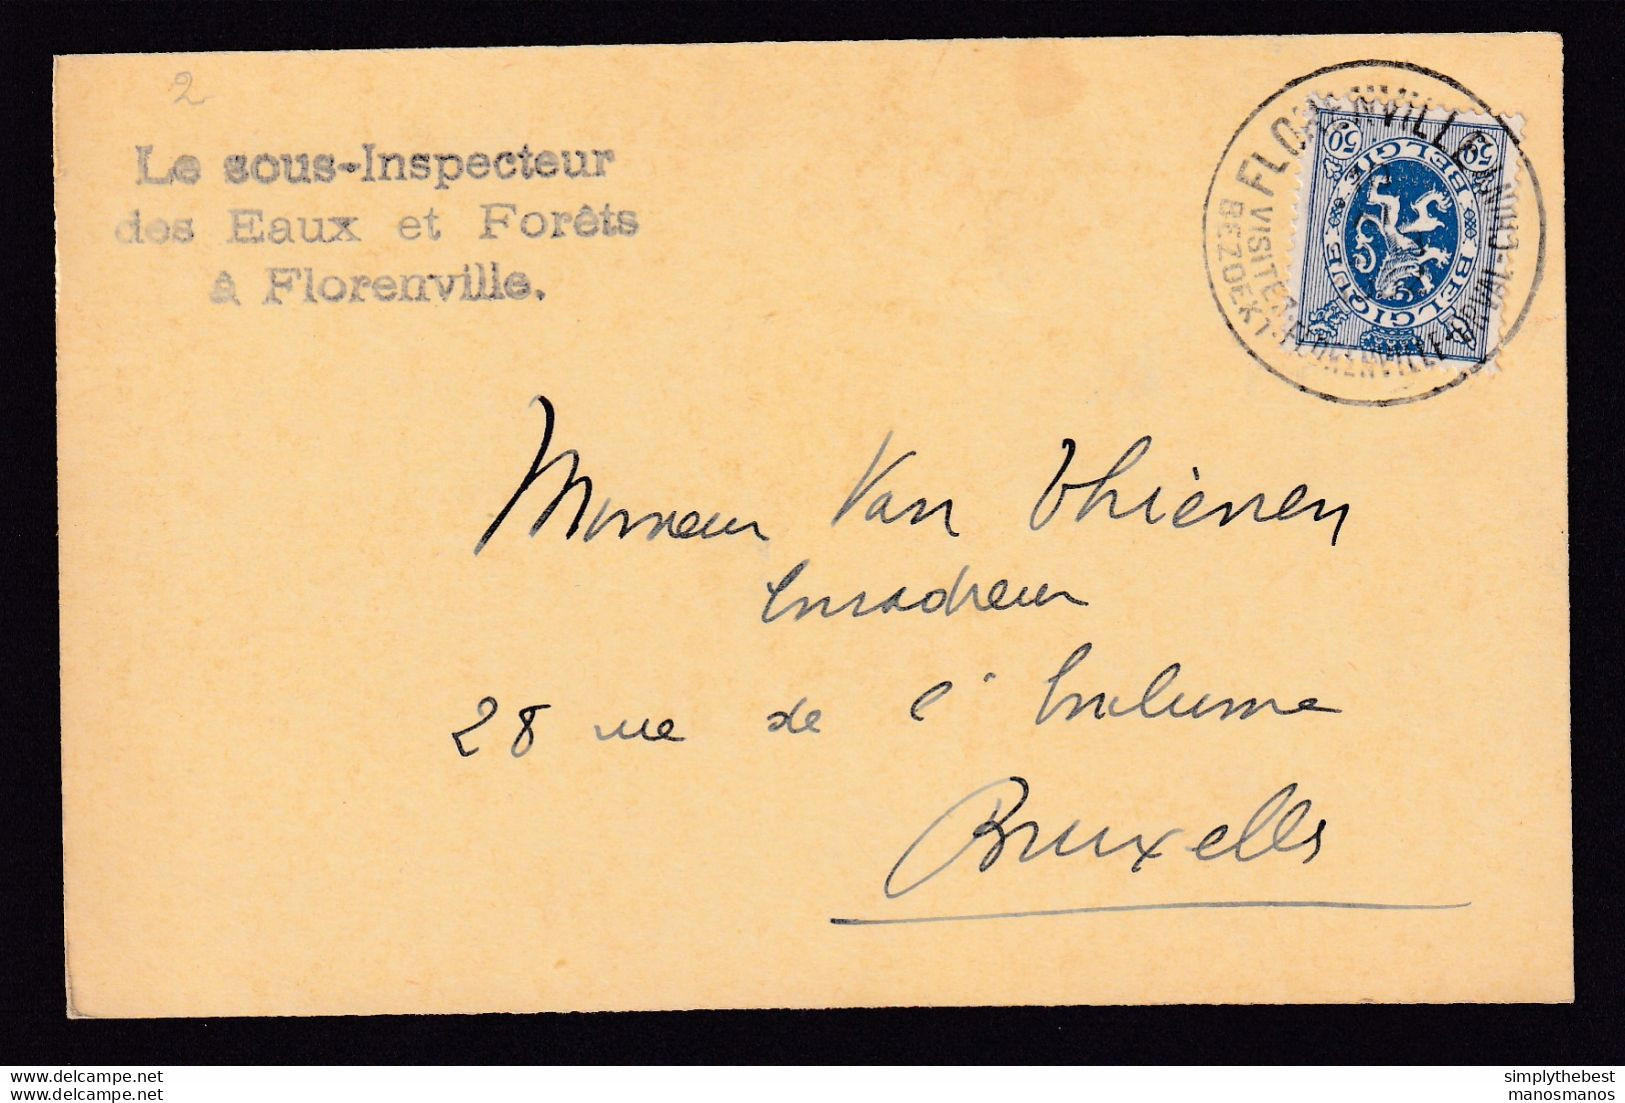 2
Le sous-Inspecteur
des Eaux et Forêts
à Florenville.
FLORENVILLE
VISITEZ FLORENVILLE
BEZOEKT
BELGIQUE BELGIE
50 50
Monsieur Van Thienen
Encadreur
28 rue de l'Enclume
Bruxelles
delcampe.net
simplythebest
manosmanos